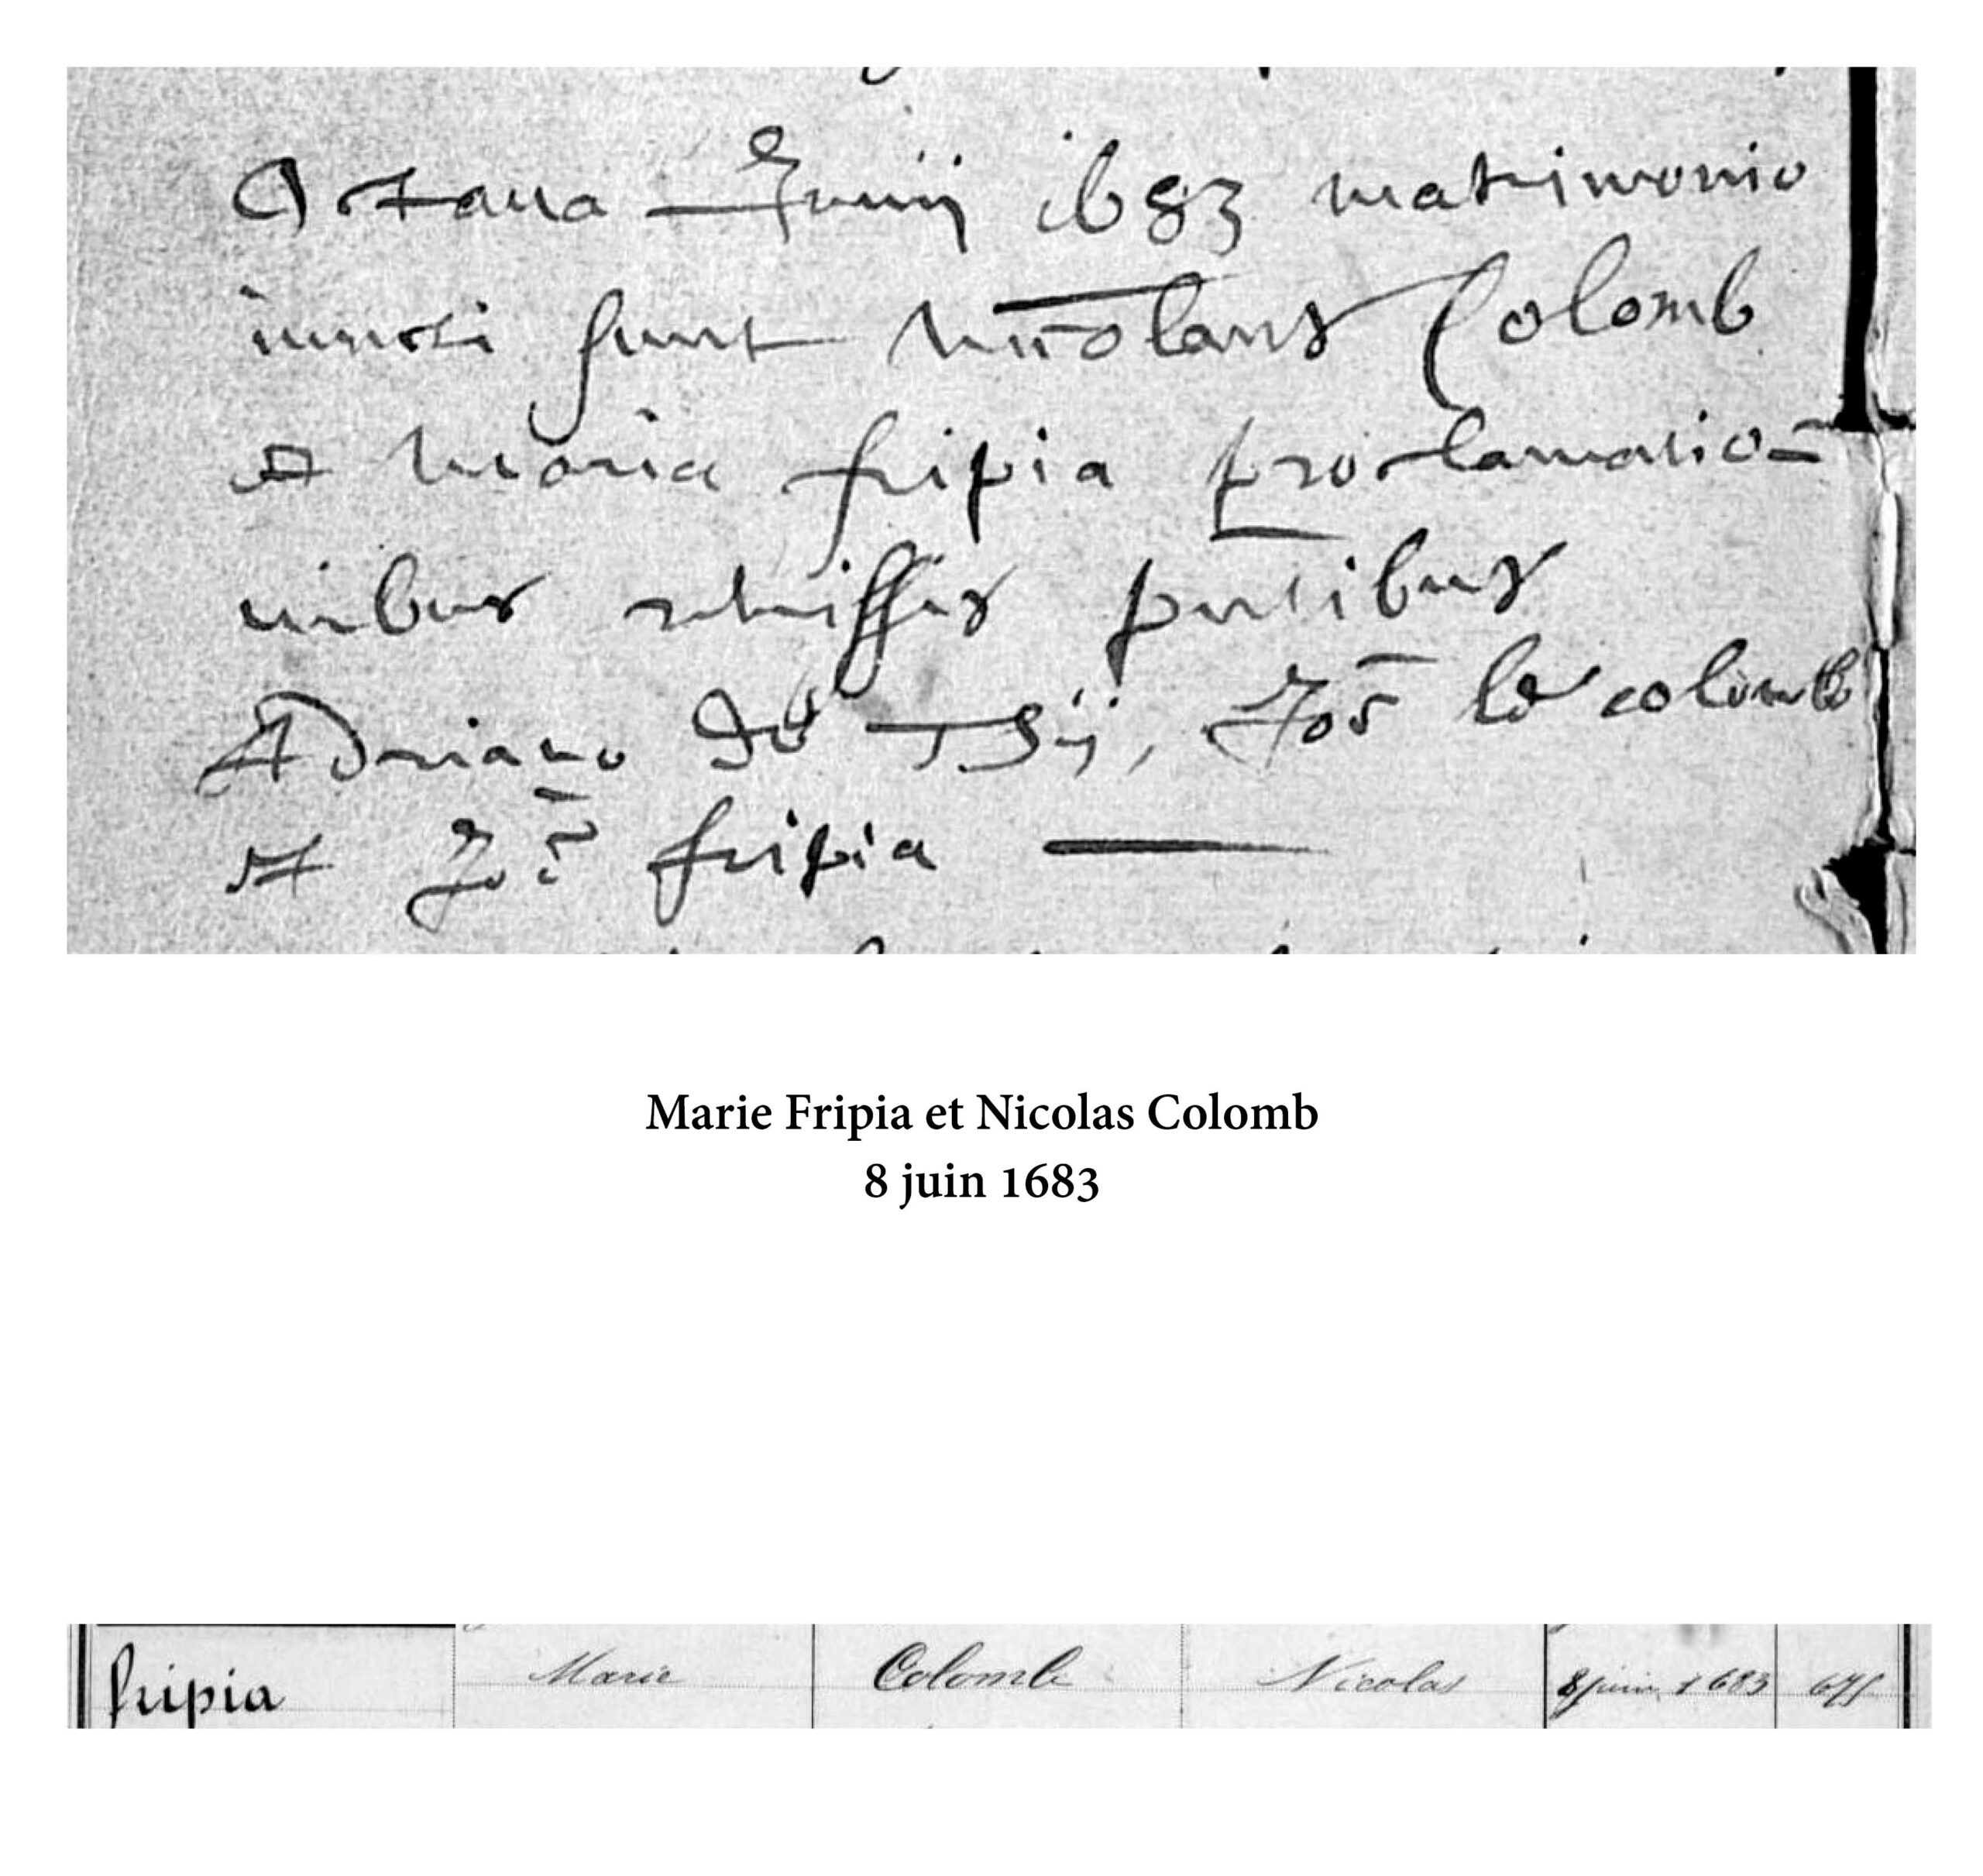 Octava Junij 1683 matrimonio
iuncti sunt Nicolaus Colomb
et Maria fripia proclamatio=
nibus remissus pntibus
Adriano de Joe le colomb
et Joe fripia
Marie Fripia et Nicolas Colomb
8 juin 1683
fripia Marie Colomb Nicolas 8 juin 1683 675